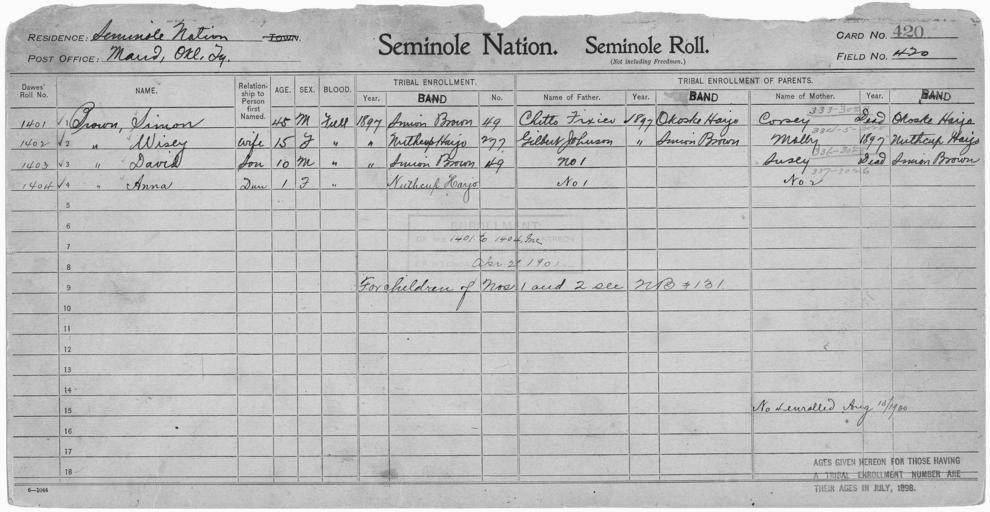 RESIDENCE: Seminole Nation TOWN. Seminole Nation. Seminole Roll. CARD NO. 420
POST OFFICE: Maud, Okl. Ty. (Not including Freedmen.) FIELD NO. 420
Dawes' Roll No. NAME. Relationship to Person first Named. AGE. SEX. BLOOD. TRIBAL ENROLLMENT. TRIBAL ENROLLMENT OF PARENTS.
Year. BAND No. Name of Father. Year. BAND Name of Mother. Year. BAND
333-302
1401 1 Brown, Simon 45 M Full 1897 Simon Brown 49 Chitto Fixico 1897 Okoske Harjo Corsey Dead Okoske Harjo
1402 2 " Wisey Wife 15 F " " Nuthcup Harjo 277 Gilbert Johnson " Simon Brown Molly 1897 Nuthcup Harjo
1403 3 " David Son 10 M " " Simon Brown 49 No 1 Susey Dead Simon Brown
1404 4 " Anna Dau 1 F " Nuthcup Harjo No 1 No 2
5
6
ENROLLMENT
7 1401 to 1404, Inc
8 Apr 2 1901
9 For children of Nos 1 and 2 see NB # 131
10
11
12
13
14
15 No 4 enrolled Aug 10/1900
16
17
18
AGES GIVEN HEREON FOR THOSE HAVING
A TRIBAL ENROLLMENT NUMBER ARE
THEIR AGES IN JULY, 1898.
6-1044